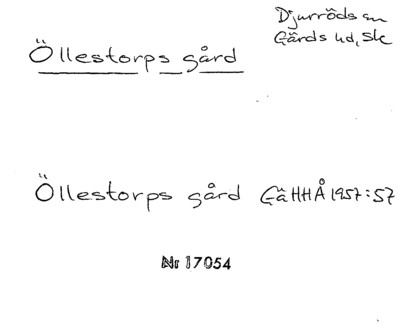 Djurröds sn
Gärds hd, Sk
Öllestorps gård
Öllestorps gård GäHHÅ 1957:57
Nr 17054